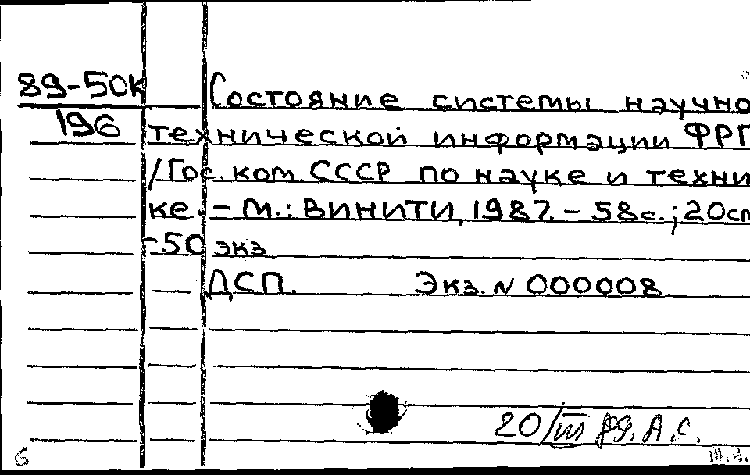 89-50к Состояние системы научно
196 технической информации ФРГ
/Гос. ком СССР по науке и техни
ке. – М.: ВИНИТИ, 1987. – 58с.; 20см
-50 экз
ДСП. Экз. N 000008
20/III 89. А.С.
6